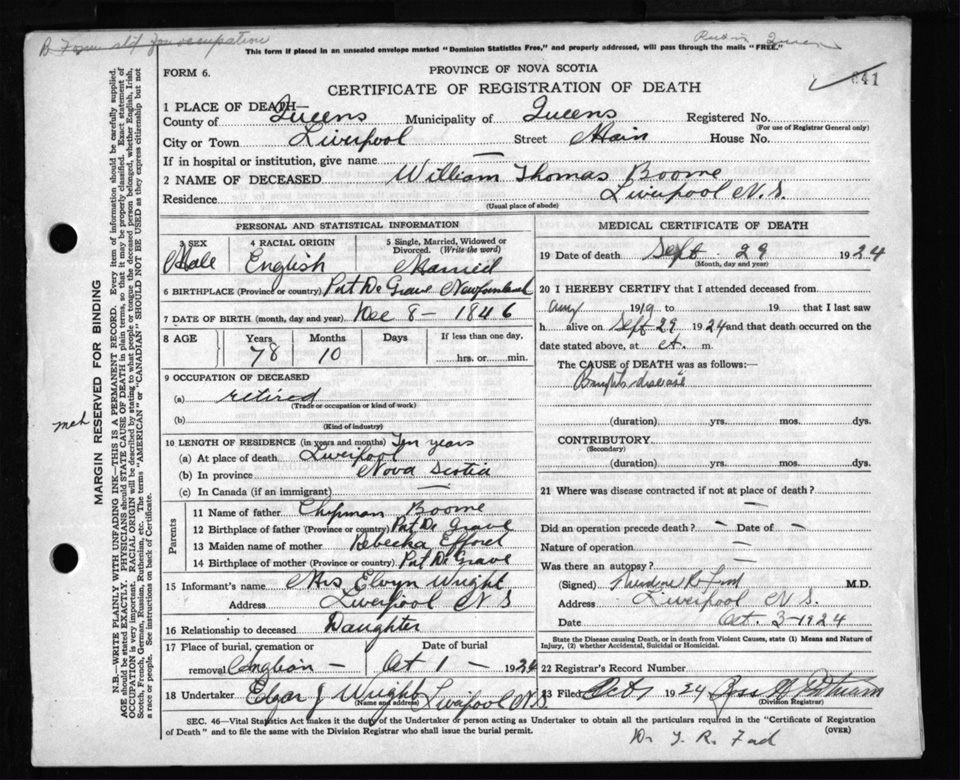 B. Township for occupation
Queens
This form if placed in an unsealed envelope marked "Dominion Statistics Free," and properly addressed, will pass through the mails "FREE."
FORM 6.
PROVINCE OF NOVA SCOTIA
CERTIFICATE OF REGISTRATION OF DEATH
641
1 PLACE OF DEATH—
County of Queens Municipality of Queens Registered No.
(For use of Registrar General only)
City or Town Liverpool Street Main House No.
If in hospital or institution, give name —
2 NAME OF DECEASED William Thomas Boome
Residence Liverpool N.S.
(Usual place of abode)
PERSONAL AND STATISTICAL INFORMATION
3 SEX 4 RACIAL ORIGIN 5 Single, Married, Widowed or Divorced. (Write the word)
Male English Married
6 BIRTHPLACE (Province or country) Port De Grave Newfoundland
7 DATE OF BIRTH (month, day and year) Dec 8 - 1846
8 AGE Years Months Days If less than one day,
78 10 hrs. or min.
9 OCCUPATION OF DECEASED
(a) retired
(Trade or occupation or kind of work)
(b)
(Kind of industry)
10 LENGTH OF RESIDENCE (in years and months) Ten years
(a) At place of death Liverpool
(b) In province Nova Scotia
(c) In Canada (if an immigrant) —
Parents
11 Name of father Chipman Boome
12 Birthplace of father (Province or country) Port De Grave
13 Maiden name of mother Rebecka Efford
14 Birthplace of mother (Province or country) Port De Grave
15 Informant's name Mrs Elvyn Wright
Address Liverpool N S
16 Relationship to deceased Daughter
17 Place of burial, cremation or removal Date of burial
Oct 1 - 1924
18 Undertaker Edgar J Wright Liverpool N.S.
(Name and address)
MEDICAL CERTIFICATE OF DEATH
19 Date of death Sept 29 1924
(Month, day and year)
20 I HEREBY CERTIFY that I attended deceased from
Aug 19 to 19 that I last saw
h alive on Sept 29 1924 and that death occurred on the
date stated above, at m.
The CAUSE OF DEATH was as follows:—
Bright's disease
(duration) yrs. mos. dys.
CONTRIBUTORY.
(Secondary)
(duration) yrs. mos. dys.
21 Where was disease contracted if not at place of death?
—
Did an operation precede death? – Date of –
Nature of operation —
Was there an autopsy? —
(Signed) M.D.
Address Liverpool N.S.
Date Oct. 3 - 1924
State the Disease causing Death, or in death from Violent Causes, state (1) Means and Nature of Injury, (2) whether Accidental, Suicidal or Homicidal.
22 Registrar's Record Number
23 Filed Oct 1924
(Division Registrar)
SEC. 46—Vital Statistics Act makes it the duty of the Undertaker or person acting as Undertaker to obtain all the particulars required in the "Certificate of Registration
of Death" and to file the same with the Division Registrar who shall issue the burial permit.
(OVER)
Dr T. R. Ford
MARGIN RESERVED FOR BINDING
N.B.—WRITE PLAINLY WITH UNFADING INK—THIS IS A PERMANENT RECORD. Every item of information should be carefully supplied.
AGE should be stated EXACTLY. PHYSICIANS should STATE CAUSE OF DEATH in plain terms, so that it may be properly classified. Exact statement of
OCCUPATION is very important. RACIAL ORIGIN will be described by stating to what people or tongue the deceased person belonged, whether English, Irish,
Scotch, French, German, Russian, Ruthenian, etc. The terms "AMERICAN" or "CANADIAN" SHOULD NOT BE USED as they express citizenship but not
a race or people. See instructions on back of Certificate.